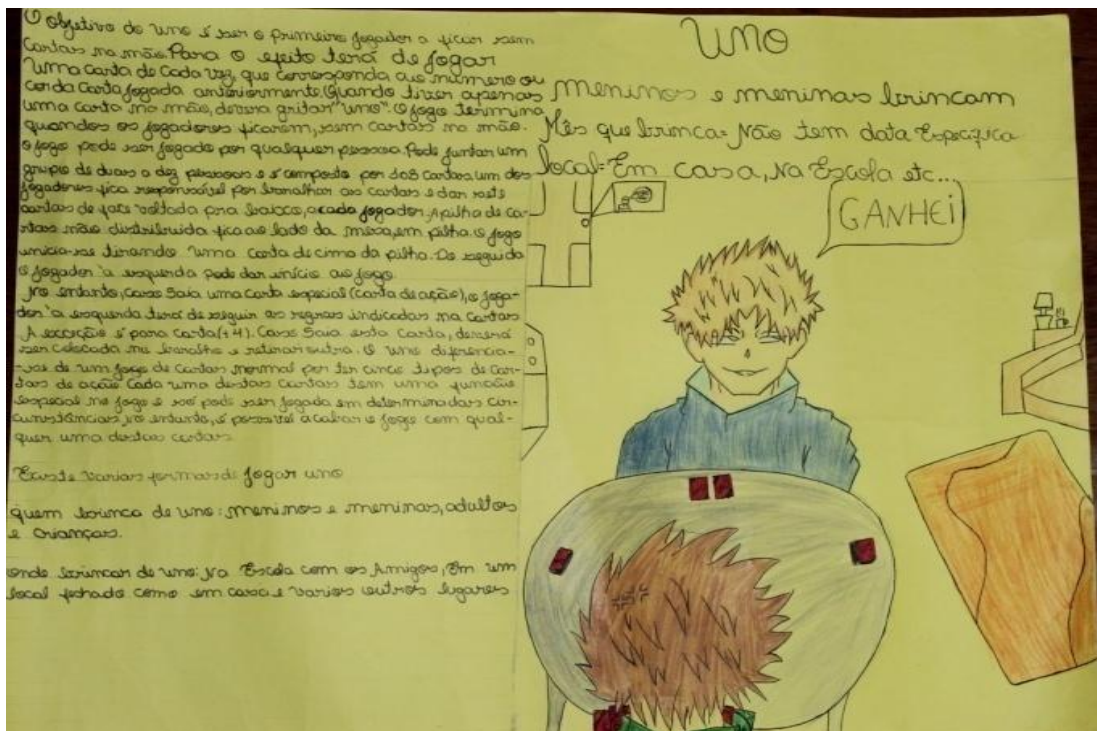 O objetivo do uno é ser o primeiro jogador a ficar sem
Cartas na mão. Para o efeito terá de jogar
Uma carta de Cada vez, que corresponda ao número ou
cor da Carta jogada anteriormente. Quando tiver apenas
uma carta na mão, devera gritar "uno". O jogo termina
quandos os jogadores ficarem, sem cartas na mão.
O jogo pode ser jogado por qualquer pessoa. Pode juntar um
grupo de duas a dez pessoas e é composto por 108 cartas um dos
jogadores fica responsável por baralhar as cartas e dar sete
cartas de face voltada pra baixo, a cada jogador. A pilha de ca-
rtas não distribuida fica ao lado da mesa, em pilha. O jogo
unicia-se tirando Uma carta de cima da pilha. De seguida
o jogador 'a esquerda pode dar início ao jogo.
No entanto, Caso Saia uma Carta especial (carta de ação), o joga-
dor 'a esquerda terá de seguir as regras indicadas na cartas
A exceção é para carta (+4). Caso Saia esta Carta, deverá
ser colocada no baralho e retirar outra. O uno diferencia-
-se de um jogo de Cartas normal por ter cinco tipos de Car-
tas de ação Cada uma destas Cartas tem uma função
especial no jogo e só pode ser jogada em determinadas Cir-
cunstâncias, no entanto, é possível acabar o jogo com qual-
quer uma destas cartas.
Existe varias formas de jogar uno
quem brinca de uno: meninos e meninas, adultos
e crianças.
onde brincar de uno: Na Escola com os Amigos, Em um
local fechado como em casa e varios outros lugares
UNO
meninos e meninas brincam
Mês que brinca= Não tem data Especifica
local= Em casa, Na Escola etc...
GANHEI